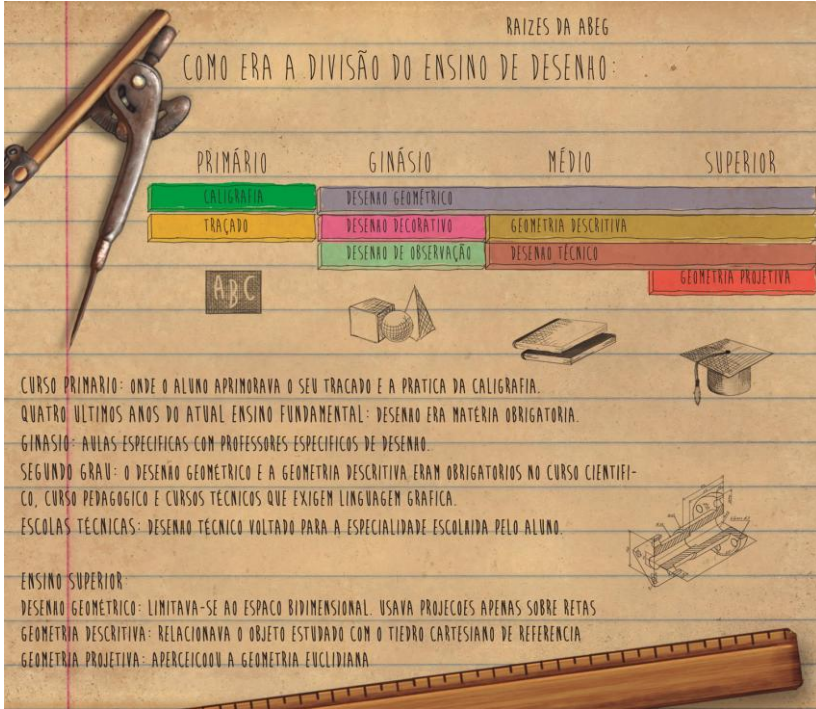 RAIZES DA ABEG
COMO ERA A DIVISÃO DO ENSINO DE DESENHO:
PRIMÁRIO GINÁSIO MÉDIO SUPERIOR
CALIGRAFIA DESENHO GEOMÉTRICO
TRAÇADO DESENHO DECORATIVO GEOMETRIA DESCRITIVA
DESENHO DE OBSERVAÇÃO DESENHO TÉCNICO
GEOMETRIA PROJETIVA
ABC
CURSO PRIMARIO: ONDE O ALUNO APRIMORAVA O SEU TRACADO E A PRATICA DA CALIGRAFIA.
QUATRO ULTIMOS ANOS DO ATUAL ENSINO FUNDAMENTAL: DESENHO ERA MATERIA OBRIGATORIA.
GINASIO: AULAS ESPECIFICAS COM PROFESSORES ESPECIFICOS DE DESENHO.
SEGUNDO GRAU: O DESENHO GEOMÉTRICO E A GEOMETRIA DESCRITIVA ERAM OBRIGATORIOS NO CURSO CIENTIFI-
CO, CURSO PEDAGOGICO E CURSOS TÉCNICOS QUE EXIGEM LINGUAGEM GRAFICA.
ESCOLAS TÉCNICAS: DESENHO TÉCNICO VOLTADO PARA A ESPECIALIDADE ESCOLHIDA PELO ALUNO.
ENSINO SUPERIOR:
DESENHO GEOMÉTRICO: LIMITAVA-SE AO ESPACO BIDIMENSIONAL. USAVA PROJECOES APENAS SOBRE RETAS
GEOMETRIA DESCRITIVA: RELACIONAVA O OBJETO ESTUDADO COM O TIEDRO CARTESIANO DE REFERENCIA
GEOMETRIA PROJETIVA: APERCEICOOU A GEOMETRIA EUCLIDIANA